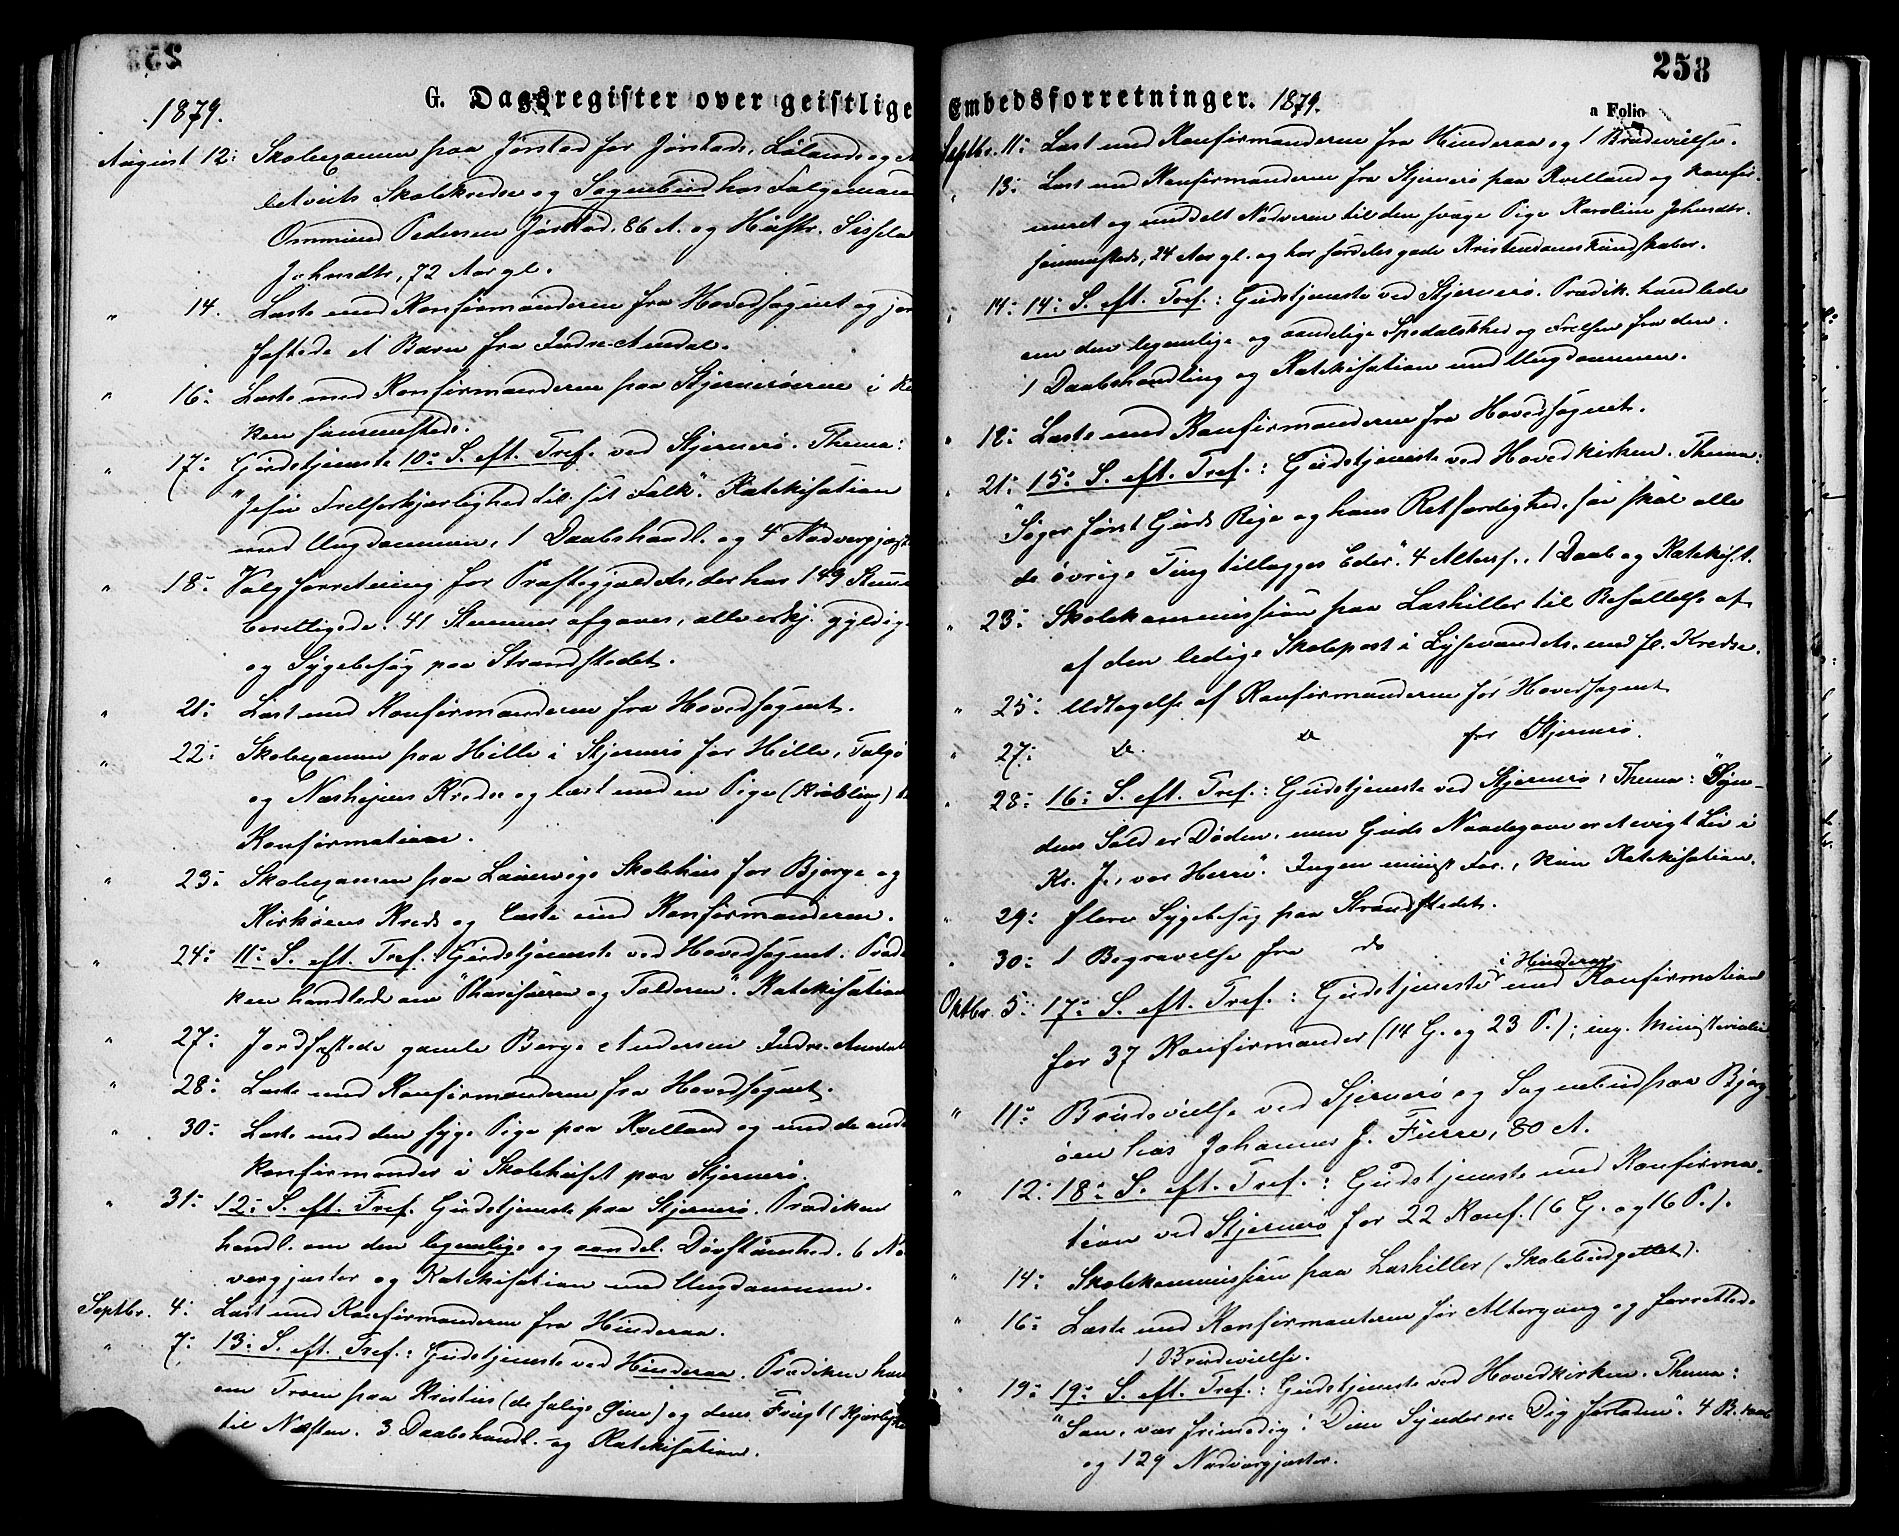 258
G. Dagsregister over geistlige
1879.
August 12: Skoleexamen paa Jørstad for Jørstads,Ølands og
Skolekredse og Sognebud hos Følgemand
Ommund Pedersen Jørstad, 86 A. og Hustr. Sissela
Johnsdtr, 72 Aar gl.
" 14. Læste med Konfirmanderne fra Hovedsognet og jord
fæstede et Barn fra Indre-Amdal.
" 16: Læste med Konfirmanderne paa Stjernerøerne i Kir
ken sammesteds.
" 17: Gudstjeneste 10: S. eft. Tref. ved Stjernerø. Thema:
"Jesu Frelserkjærlighed til sit Folk". Katekisation
med Ungdommen, 1 Daabshandl. og 4 Nadvergjæste
" 18: Valgforretning for Præstegjældet, der har 149 Stemme
berettigede. 41 Stemmer afgaves, alle erkj. gyldig
og Sygebesøg paa Strandstedet.
" 21: Læst med Konfirmanderne fra Hovedsognet.
" 22: Skoleexamen paa Helle i Stjernerø for Helle, Talgø
og Næshejens Kredse og læst med en Pige (Krøbling) til
Konfirmation.
" 23: Skoleexamen paa Lauervigs Skolehus for Bjerge og
Kirkøens Kreds og Læste med Konfirmanderne.
" 24: 11: S. eft. Tref. Gudstjeneste ved Hovedsognet. Prædi
ken handlede om "Pharisæeren og Tolderen". Katekisation
" 27: Jordfæstede gamle Børge Andersen Indre-Amdal
" 28: Læste med Konfirmanderne fra Hovedsognet.
" 30: Læste med den syge Pige paa Kvelland og med de andre
Konfirmander i Skolehuset paa Stjernerø.
" 31: 12: S. eft. Tref. Gudstjeneste paa Stjernerø. Prædiken
handl. om den legemlige og aandel. Døvstumhed. 6 Na
vergjæster og Katekisation med Ungdommen.
Septbr. 4: Læst med Konfirmanderne fra Hinderaa.
" 7: 13: S. eft. Tref.: Gudstjeneste ved Hinderaa. Prædiken han
om Troen paa Kristus (de salige Øine) og dens Frugt (Kjærlighe
til Næsten. 3 Daabshandl. og Katekisation.
258
Embedsforretninger. 1879.
a Folio
Septbr. 11: Læst med Konfirmanderne fra Hinderaa og 1 Brudevielse.
" 13: Læst med Konfirmanderne fra Stjernerø paa Kvelland og konfir-
meret og meddelt Nadveren til den svage Pige Karoline Johnsdtr.
sammesteds, 24 Aar gl. og har særdeles gode Kristendomskundskaber.
" 14: 14: S. eft. Tref.: Gudstjeneste ved Stjernerø. Prædik. handlede
om den legemlige og aandelige Spedalskhed og Frelsen fra den.
1 Daabshandling og Katekisation med Ungdommen.
" 18: Læste med Konfirmanderne fra Hovedsognet.
" 21: 15: S. eft. Tref.: Gudstjeneste ved Hovedkirken. Thema:
"Søger først Guds Rige og hans Retfærdighed, saa skal alle
de øvrige Ting tillægges Eder". 4 Altersf., 1 Daab og Katekis.
" 23: Skolekommission paa Lashiller til Besættelse af
af den ledige Skolepost i Lysevandets med fl. Kredse.
" 25: Udtagelse af Konfirmanderne for Hovedsognet
" 27: do. do for Stjernerø.
" 28: 16: S. eft. Tref.: Gudstjeneste ved Stjernerø. Thema: "Syn-
dens Sold er Døden, men Guds Naadegave er et evigt Liv i
Kr. J., vor Herre". Ingen minist. For., kun Katekisation.
" 29: flere Sygebesøg paa Strandstedet.
" 30: 1 Begravelse fra do
Oktbr. 5: 17: S. eft. Tref.: Gudstjeneste i Hinderaa med Konfirmation
for 37 Konfirmander (14 G. og 23 P.); ing. Ministerialia
" 11: Brudevielse ved Stjernerø og Sognebud paa Bjerg-
øen hos Johannes J. Furre, 80 A.
" 12: 18: S. eft. Tref.: Gudstjeneste med Konfirma-
tion ved Stjernerø for 22 Konf. (6 G. og 16 P.).
" 14: Skolekommission paa Lashiller (Skolebudgettet).
" 16: Læste med Konfirmanterne før Altergang og forrettede
1 Brudevielse.
" 19: 19: S. eft. Tref.: Gudstjeneste ved Hovedkirken. Thema:
"Søn, vær frimodig! Dine Synder ere Dig forladne". 4 B. daab
og 129 Nadvergjæster.